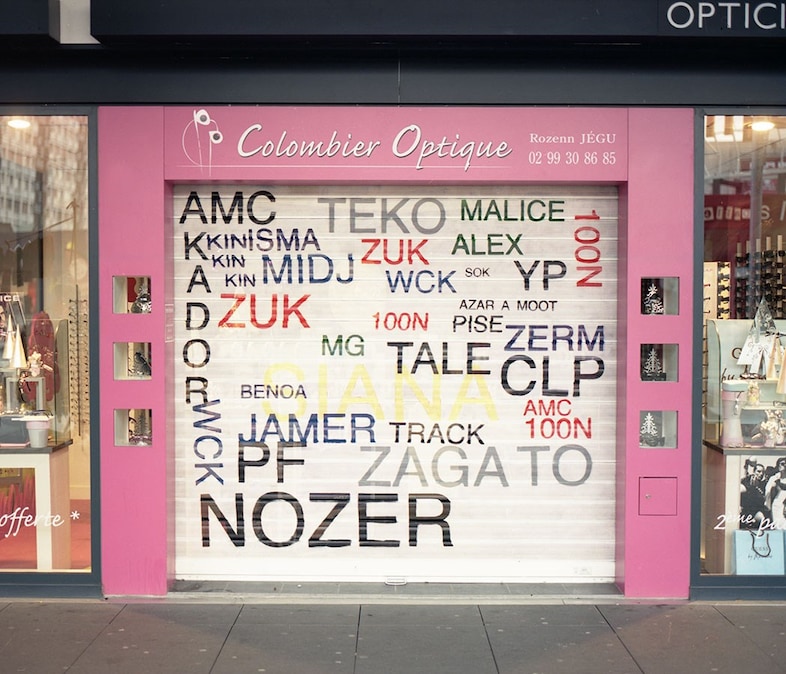 OPTICI
Colombier Optique
Rozenn JÉGU
02 99 30 86 85
AMC
TEKO
MALICE
100N
KINISMA
ZUK
ALEX
KIN
MIDJ
WCK
SOK
YP
KIN
AKADOR
ZUK
AZAR A MOOT
100N
PISE
MG
ZERM
TALE
CLP
SIANA
BENOA
AMC
100N
WCK
JAMER
TRACK
PF
ZAGATO
NOZER
offerte *
2eme pu